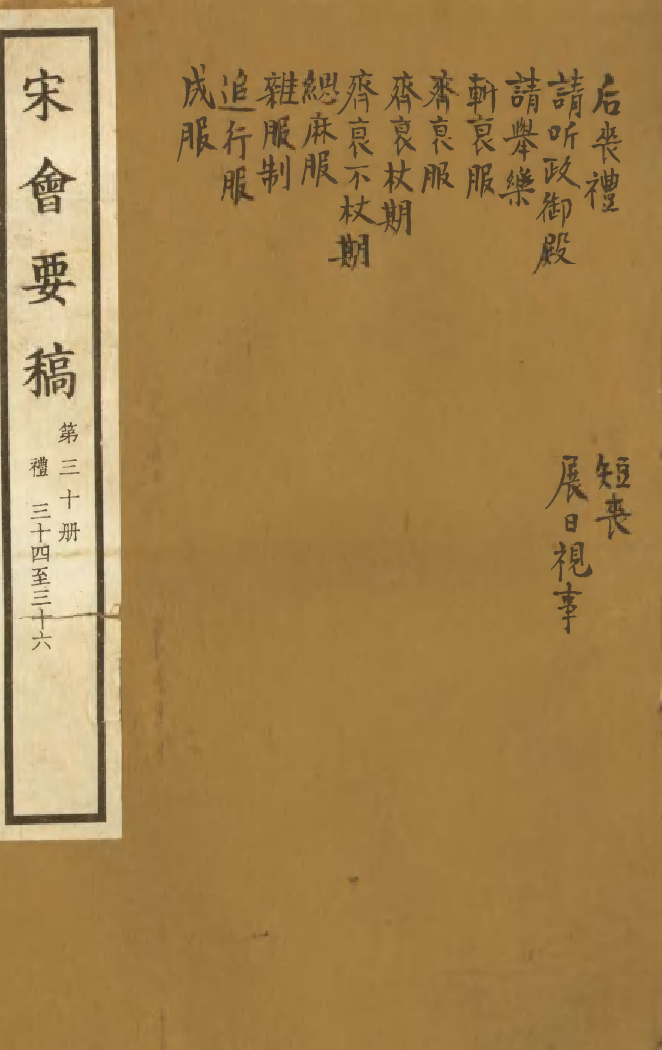 后喪禮
請听政御殿
請舉樂
斬衰服
齊衰服
齊衰杖期
齊衰不杖期
緦麻服
雜服制
追行服
成服
短喪
展日視事
宋會要稿
第三十册
禮 三十四至三十六